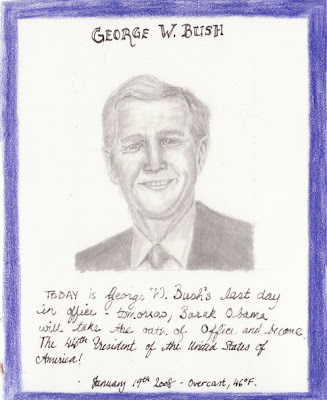 GEORGE W. BUSH
TODAY is George W. Bush's last day
in office - tomorrow, Barak Obama
will take the oath of Office and become
The 44th President of the United States of
America!
· January 19th 2008 - Overcast, 46°F.